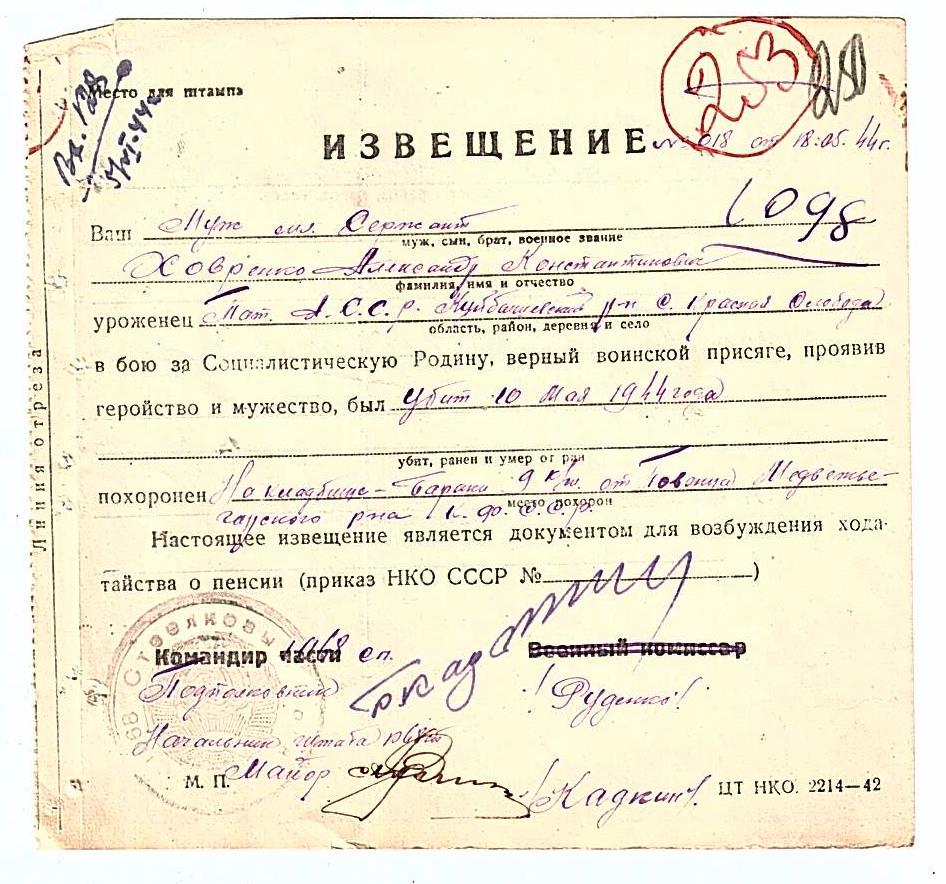 Место для штампа
253
250
ИЗВЕЩЕНИЕ № 018 от 18.05.44г.
Вх. 128
5/VI-44г
1098
Ваш Муж мл. Сержант
муж, сын, брат, военное звание
Ховренко Александр Константинович
фамилия, имя и отчество
уроженец Тат. А.С.С.р. Куйбышевский р-н с. Красная Слобода
область, район, деревня и село
в бою за Социалистическую Родину, верный воинской присяге, проявив
геройство и мужество, был убит 10 мая 1944 года
убит, ранен и умер от ран
похоронен На кладбище - Бараки 9 к/м. от Повенца Медвежье-
место похорон
горского р-на К.Ф.С.С.р.
Настоящее извещение является документом для возбуждения хода-
тайства о пенсии (приказ НКО СССР №)
Командир части 1068 сп. Военный комиссар
Подполковник /Руденко/
Начальник штаба 1068 сп
М. П. Майор /Кадкин/. ЦТ НКО. 2214—42
Линия отреза